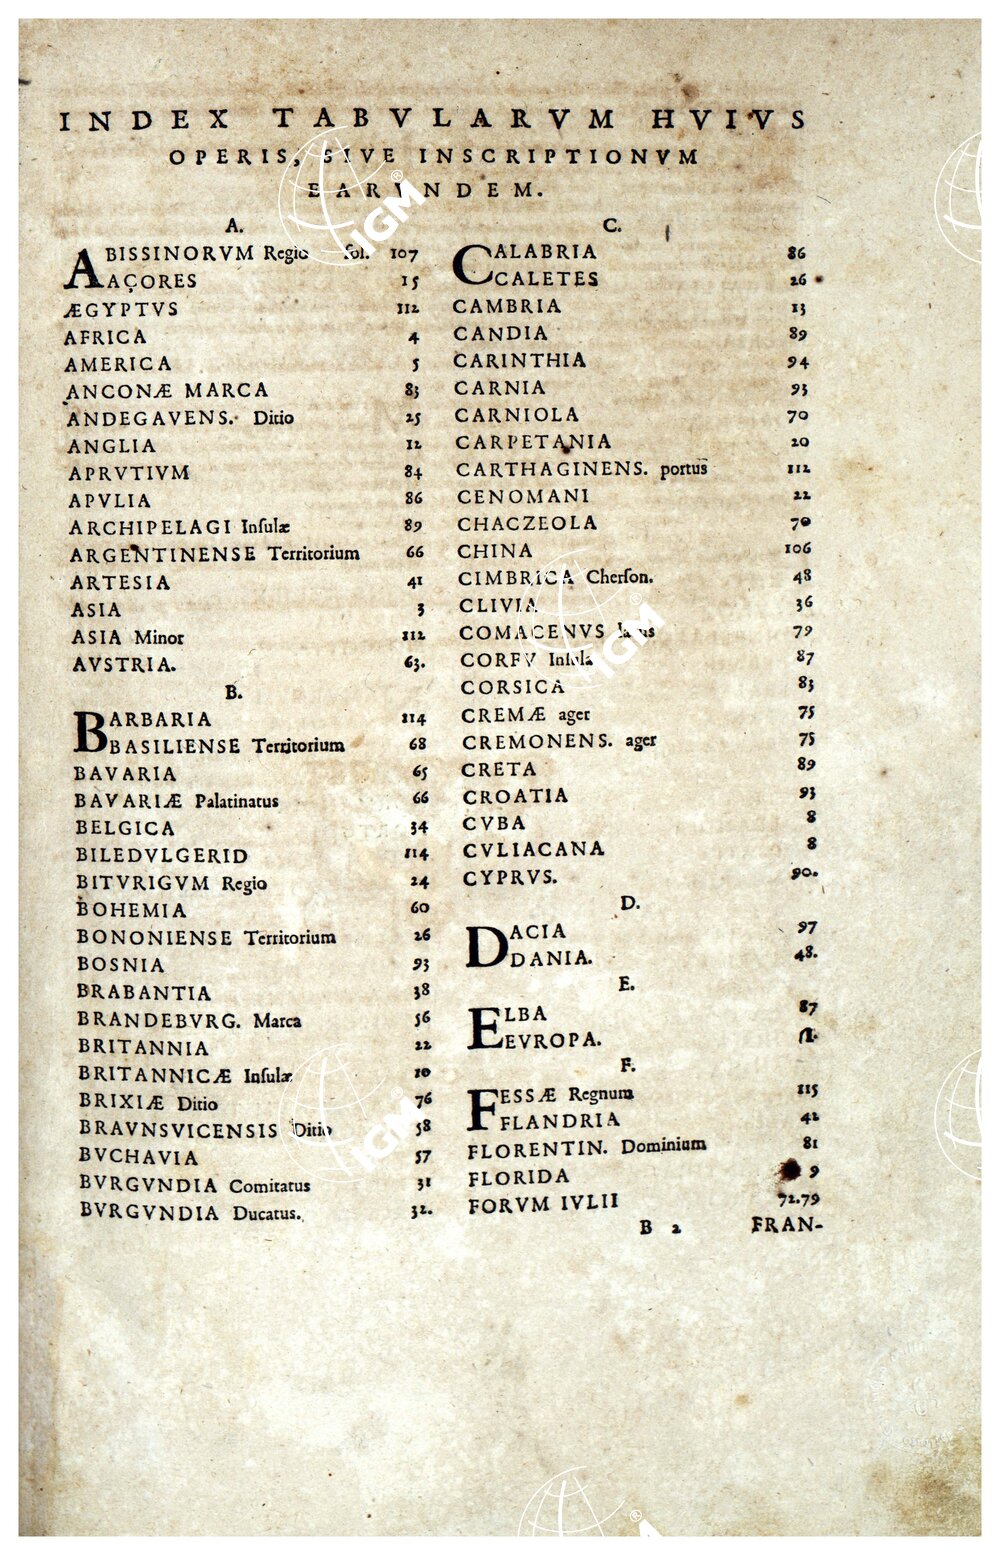 INDEX TABVLARVM HVIVS
OPERIS, SIVE INSCRIPTIONVM
EARVNDEM.
A.
ABISSINORVM Regio fol. 107
AÇORES 15
ÆGYPTVS 112
AFRICA 4
AMERICA 5
ANCONÆ MARCA 83
ANDEGAVENS. Ditio 25
ANGLIA 12
APRVTIVM 84
APVLIA 86
ARCHIPELAGI Inſulæ 89
ARGENTINENSE Territorium 66
ARTESIA 41
ASIA 3
ASIA Minor 112
AVSTRIA. 63.
B.
BARBARIA 114
BASILIENSE Territorium 68
BAVARIA 65
BAVARIÆ Palatinatus 66
BELGICA 34
BILEDVLGERID 114
BITVRIGVM Regio 24
BOHEMIA 60
BONONIENSE Territorium 26
BOSNIA 93
BRABANTIA 38
BRANDEBVRG. Marca 56
BRITANNIA 22
BRITANNICÆ Inſulæ 10
BRIXIÆ Ditio 76
BRAVNSVICENSIS Ditio 58
BVCHAVIA 57
BVRGVNDIA Comitatus 31
BVRGVNDIA Ducatus. 32.
C.
CALABRIA 86
CALETES 26
CAMBRIA 13
CANDIA 89
CARINTHIA 94
CARNIA 93
CARNIOLA 70
CARPETANIA 20
CARTHAGINENS. portus 112
CENOMANI 22
CHACZEOLA 70
CHINA 106
CIMBRICA Cherſon. 48
CLIVIA 36
COMACENVS lacus 79
CORFV Inſula 87
CORSICA 83
CREMÆ ager 75
CREMONENS. ager 75
CRETA 89
CROATIA 93
CVBA 8
CVLIACANA 8
CYPRVS. 90.
D.
DACIA 97
DANIA. 48.
E.
ELBA 87
EVROPA.
F.
FESSÆ Regnum 115
FLANDRIA 42
FLORENTIN. Dominium 81
FLORIDA 9
FORVM IVLII 72.79
B 2 FRAN-
IGM
IGM
IGM